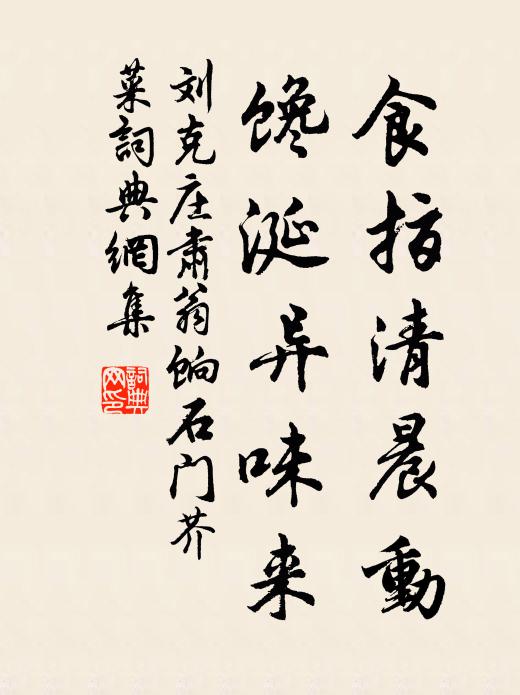 食指清晨動
馋涎异味来
刘克庄肃翁饷石门芥
菜詞典網集
詞典
网印